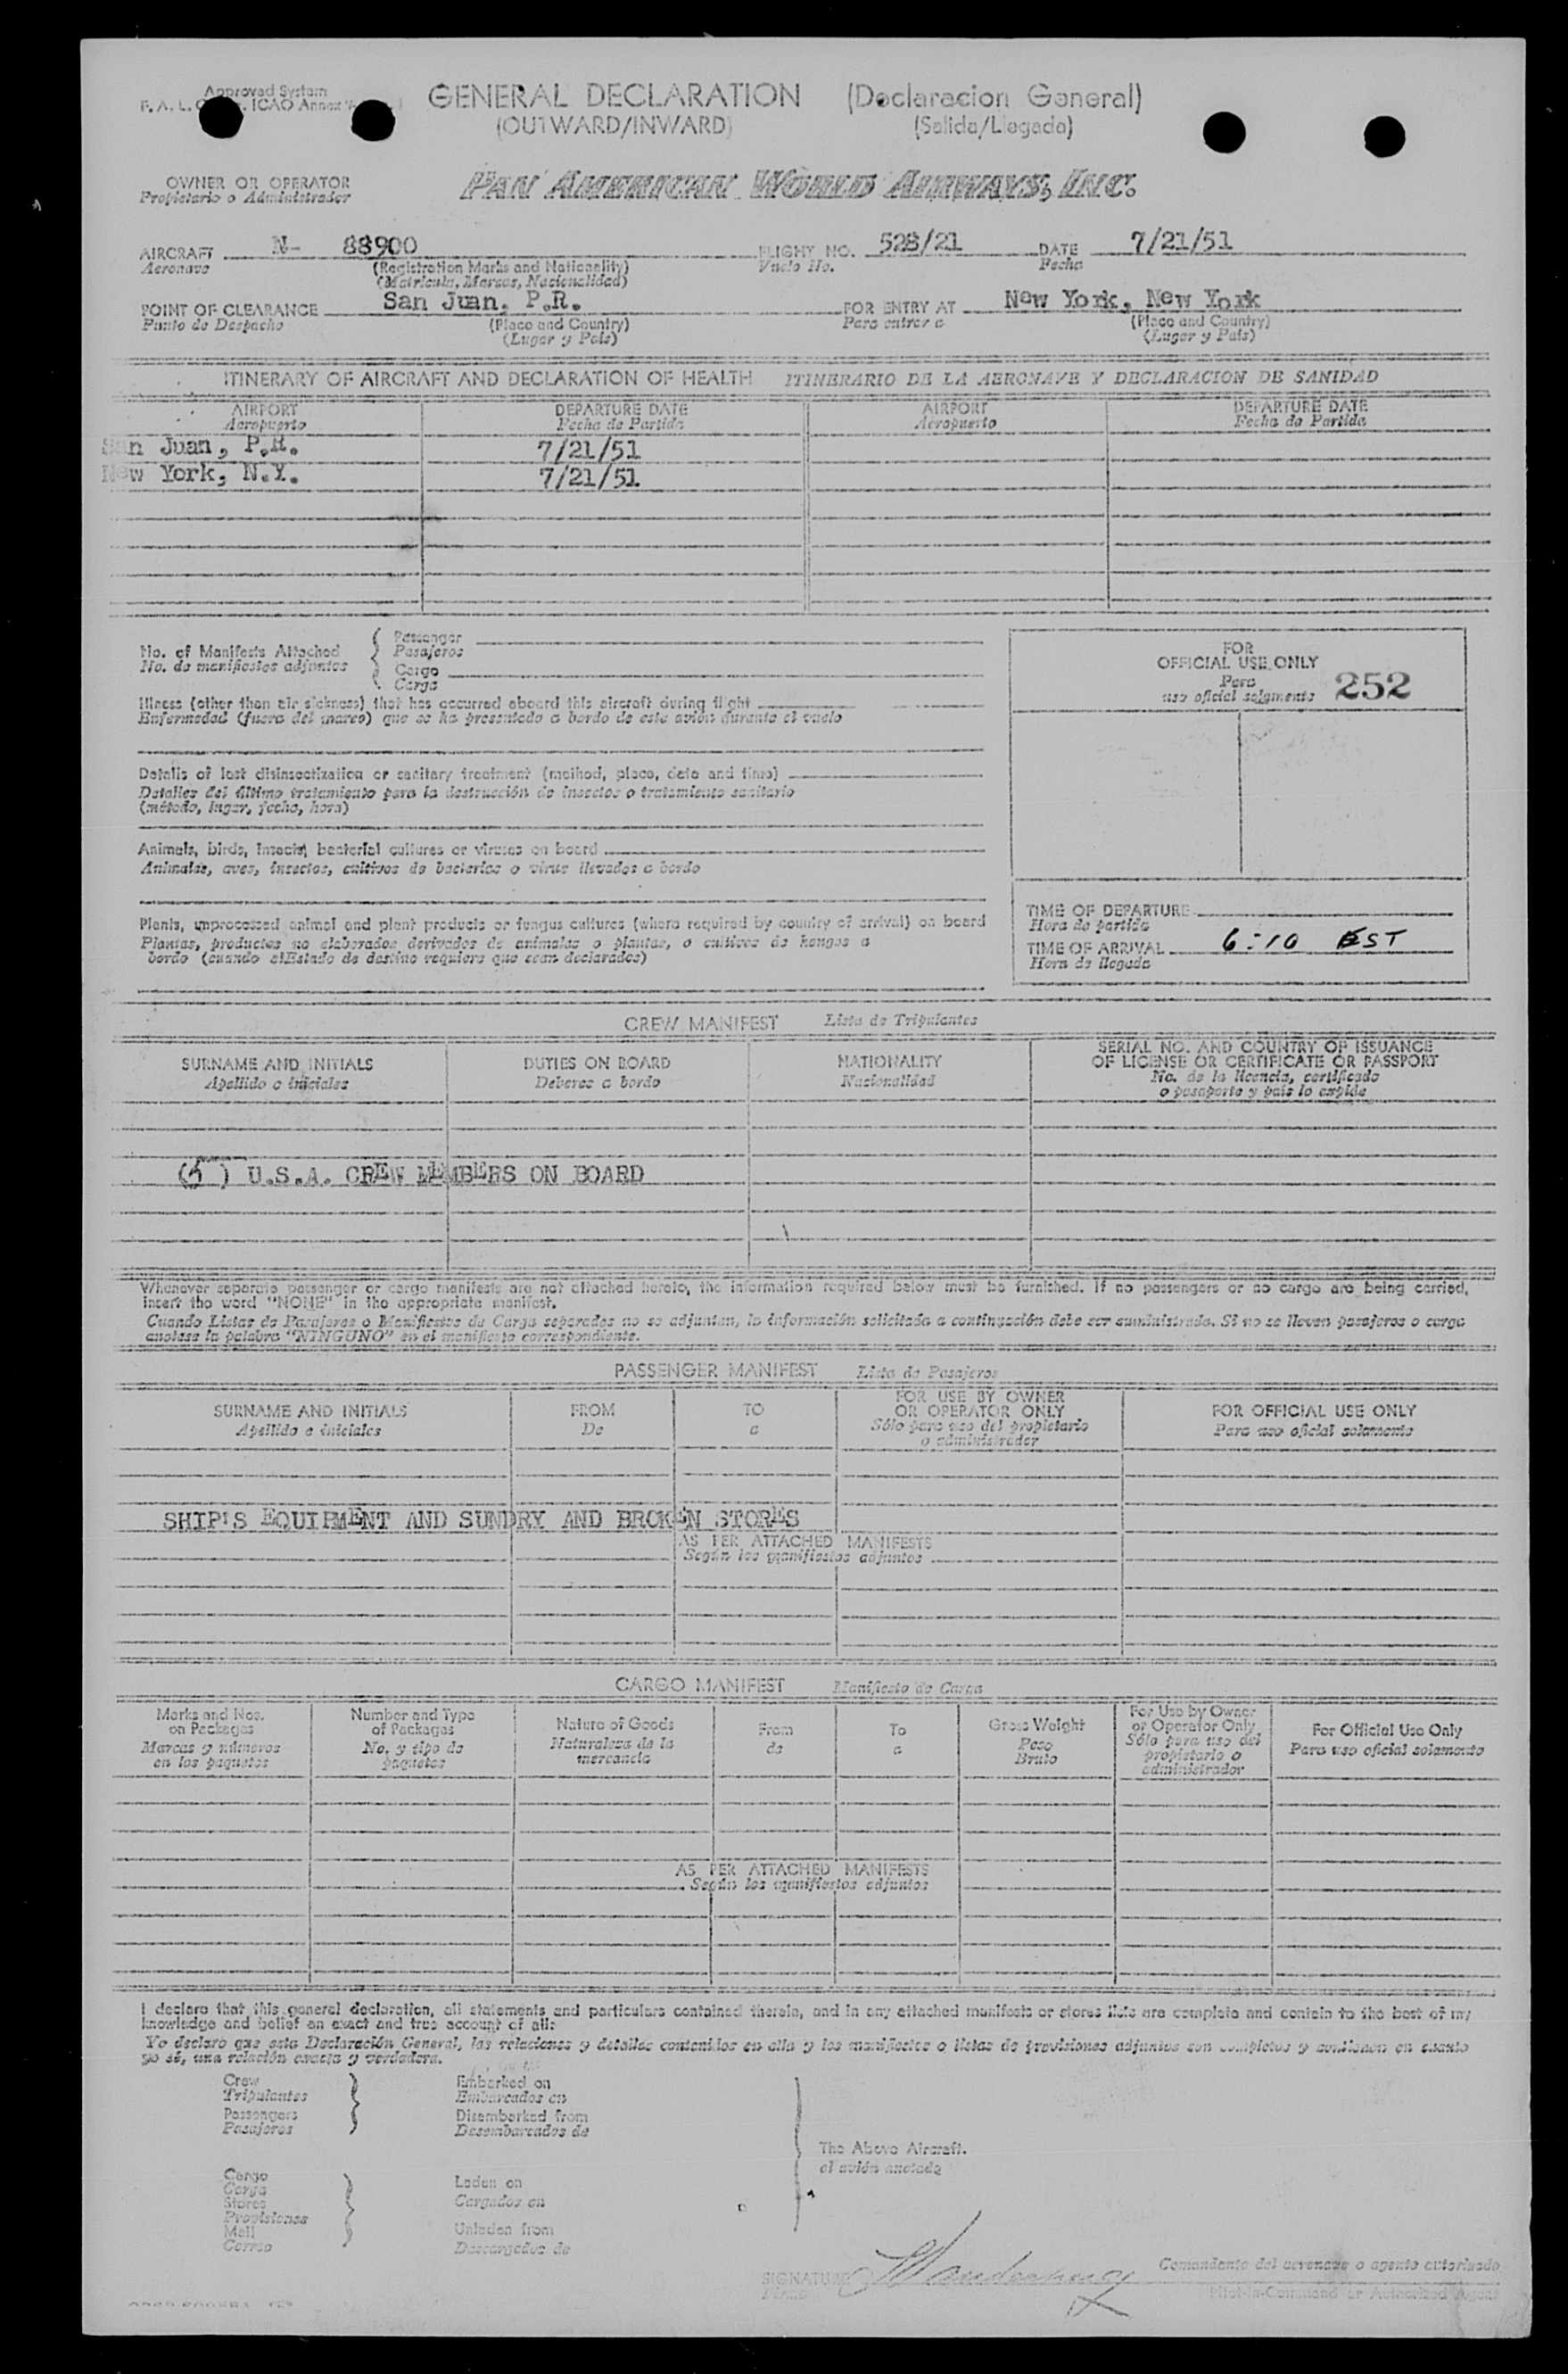 Approved System
F. A. L. ICAO Annex
GENERAL DECLARATION (Declaracion General)
(OUTWARD/INWARD) (Salida/Llegada)
OWNER OR OPERATOR
Propietario o Administrador
PAN AMERICAN WORLD AIRWAYS, INC.
AIRCRAFT N- 88900 FLIGHT NO. 528/21 DATE 7/21/51
Aeronave (Registration Marks and Nationality) Vuelo No. Fecha
(Matricula, Marcas, Nacionalidad)
POINT OF CLEARANCE San Juan, P.R. FOR ENTRY AT New York, New York
Punto de Despacho (Place and Country) Para entrar a (Place and Country)
(Lugar y Pais) (Lugar y Pais)
ITINERARY OF AIRCRAFT AND DECLARATION OF HEALTH ITINERARIO DE LA AERONAVE Y DECLARACION DE SANIDAD
AIRPORT DEPARTURE DATE AIRPORT DEPARTURE DATE
Aeropuerto Fecha de Partida Aeropuerto Fecha de Partida
San Juan, P.R. 7/21/51
New York, N.Y. 7/21/51
No. of Manifests Attached
No. de manifiestos adjuntos
Passenger
Pasajeros
Cargo
Carga
Illness (other than air sickness) that has occurred aboard this aircraft during flight
Enfermedad (fuera del mareo) que se ha presentado a bordo de este avión durante el vuelo
Details of last disinsectization or sanitary treatment (method, place, date and time)
Detalles del último tratamiento para la destrucción de insectos o tratamiento sanitario
(método, lugar, fecha, hora)
Animals, birds, insects, bacterial cultures or viruses on board
Animales, aves, insectos, cultivos de bacterias o virus llevados a bordo
Plants, unprocessed animal and plant products or fungus cultures (where required by country of arrival) on board
Plantas, productos no elaborados derivados de animales o plantas, o cultivos de hongos a
bordo (cuando el Estado de destino requiera que sean declarados)
FOR
OFFICIAL USE ONLY
Para
uso oficial solamente 252
TIME OF DEPARTURE
Hora de partida
TIME OF ARRIVAL 6:10 EST
Hora de llegada
CREW MANIFEST Lista de Tripulantes
SURNAME AND INITIALS DUTIES ON BOARD NATIONALITY SERIAL NO. AND COUNTRY OF ISSUANCE
OF LICENSE OR CERTIFICATE OR PASSPORT
Apellido e iniciales Deberes a bordo Nacionalidad No. de la licencia, certificado
o pasaporte y pais lo expide
(5) U.S.A. CREW MEMBERS ON BOARD
Whenever separate passenger or cargo manifests are not attached hereto, the information required below must be furnished. If no passengers or no cargo are being carried,
insert the word "NONE" in the appropriate manifest.
Cuando Listas de Pasajeros o Manifiestos de Carga separados no se adjuntan, la información solicitada a continuación debe ser suministrada. Si no se llevan pasajeros o carga
anotese la palabra "NINGUNO" en el manifiesto correspondiente.
PASSENGER MANIFEST Lista de Pasajeros
SURNAME AND INITIALS FROM TO FOR USE BY OWNER
OR OPERATOR ONLY FOR OFFICIAL USE ONLY
Apellido e iniciales De a Sólo para uso del propietario
o administrador Para uso oficial solamente
SHIP'S EQUIPMENT AND SUNDRY AND BROKEN STORES
AS PER ATTACHED MANIFESTS
Según los manifiestos adjuntos
CARGO MANIFEST Manifiesto de Carga
Marks and Nos.
on Packages
Marcas y números
en los paquetes
Number and Type
of Packages
No. y tipo de
paquetes
Nature of Goods
Naturaleza de la
mercancia
From
de
To
a
Gross Weight
Peso
Bruto
For Use by Owner
or Operator Only
Sólo para uso del
propietario o
administrador
For Official Use Only
Para uso oficial solamente
AS PER ATTACHED MANIFESTS
Según los manifiestos adjuntos
I declare that this general declaration, all statements and particulars contained therein, and in any attached manifests or stores lists are complete and contain to the best of my
knowledge and belief an exact and true account of all:
Yo declaro que esta Declaración General, las relaciones y detalles contenidos en ella y los manifiestos o listas de provisiones adjuntas son completos y contienen en cuanto
yo sé, una relación exacta y verdadera.
Crew
Tripulantes
Passengers
Pasajeros
Embarked on
Embarcados en
Disembarked from
Desembarcados de
Cargo
Carga
Stores
Provisiones
Mail
Correo
Laden on
Cargados en
Unladen from
Descargados de
The Above Aircraft.
el avión anotado
SIGNATURE
Comandante del aeronave o agente autorizado
Pilot-in-Command or Authorized Agent